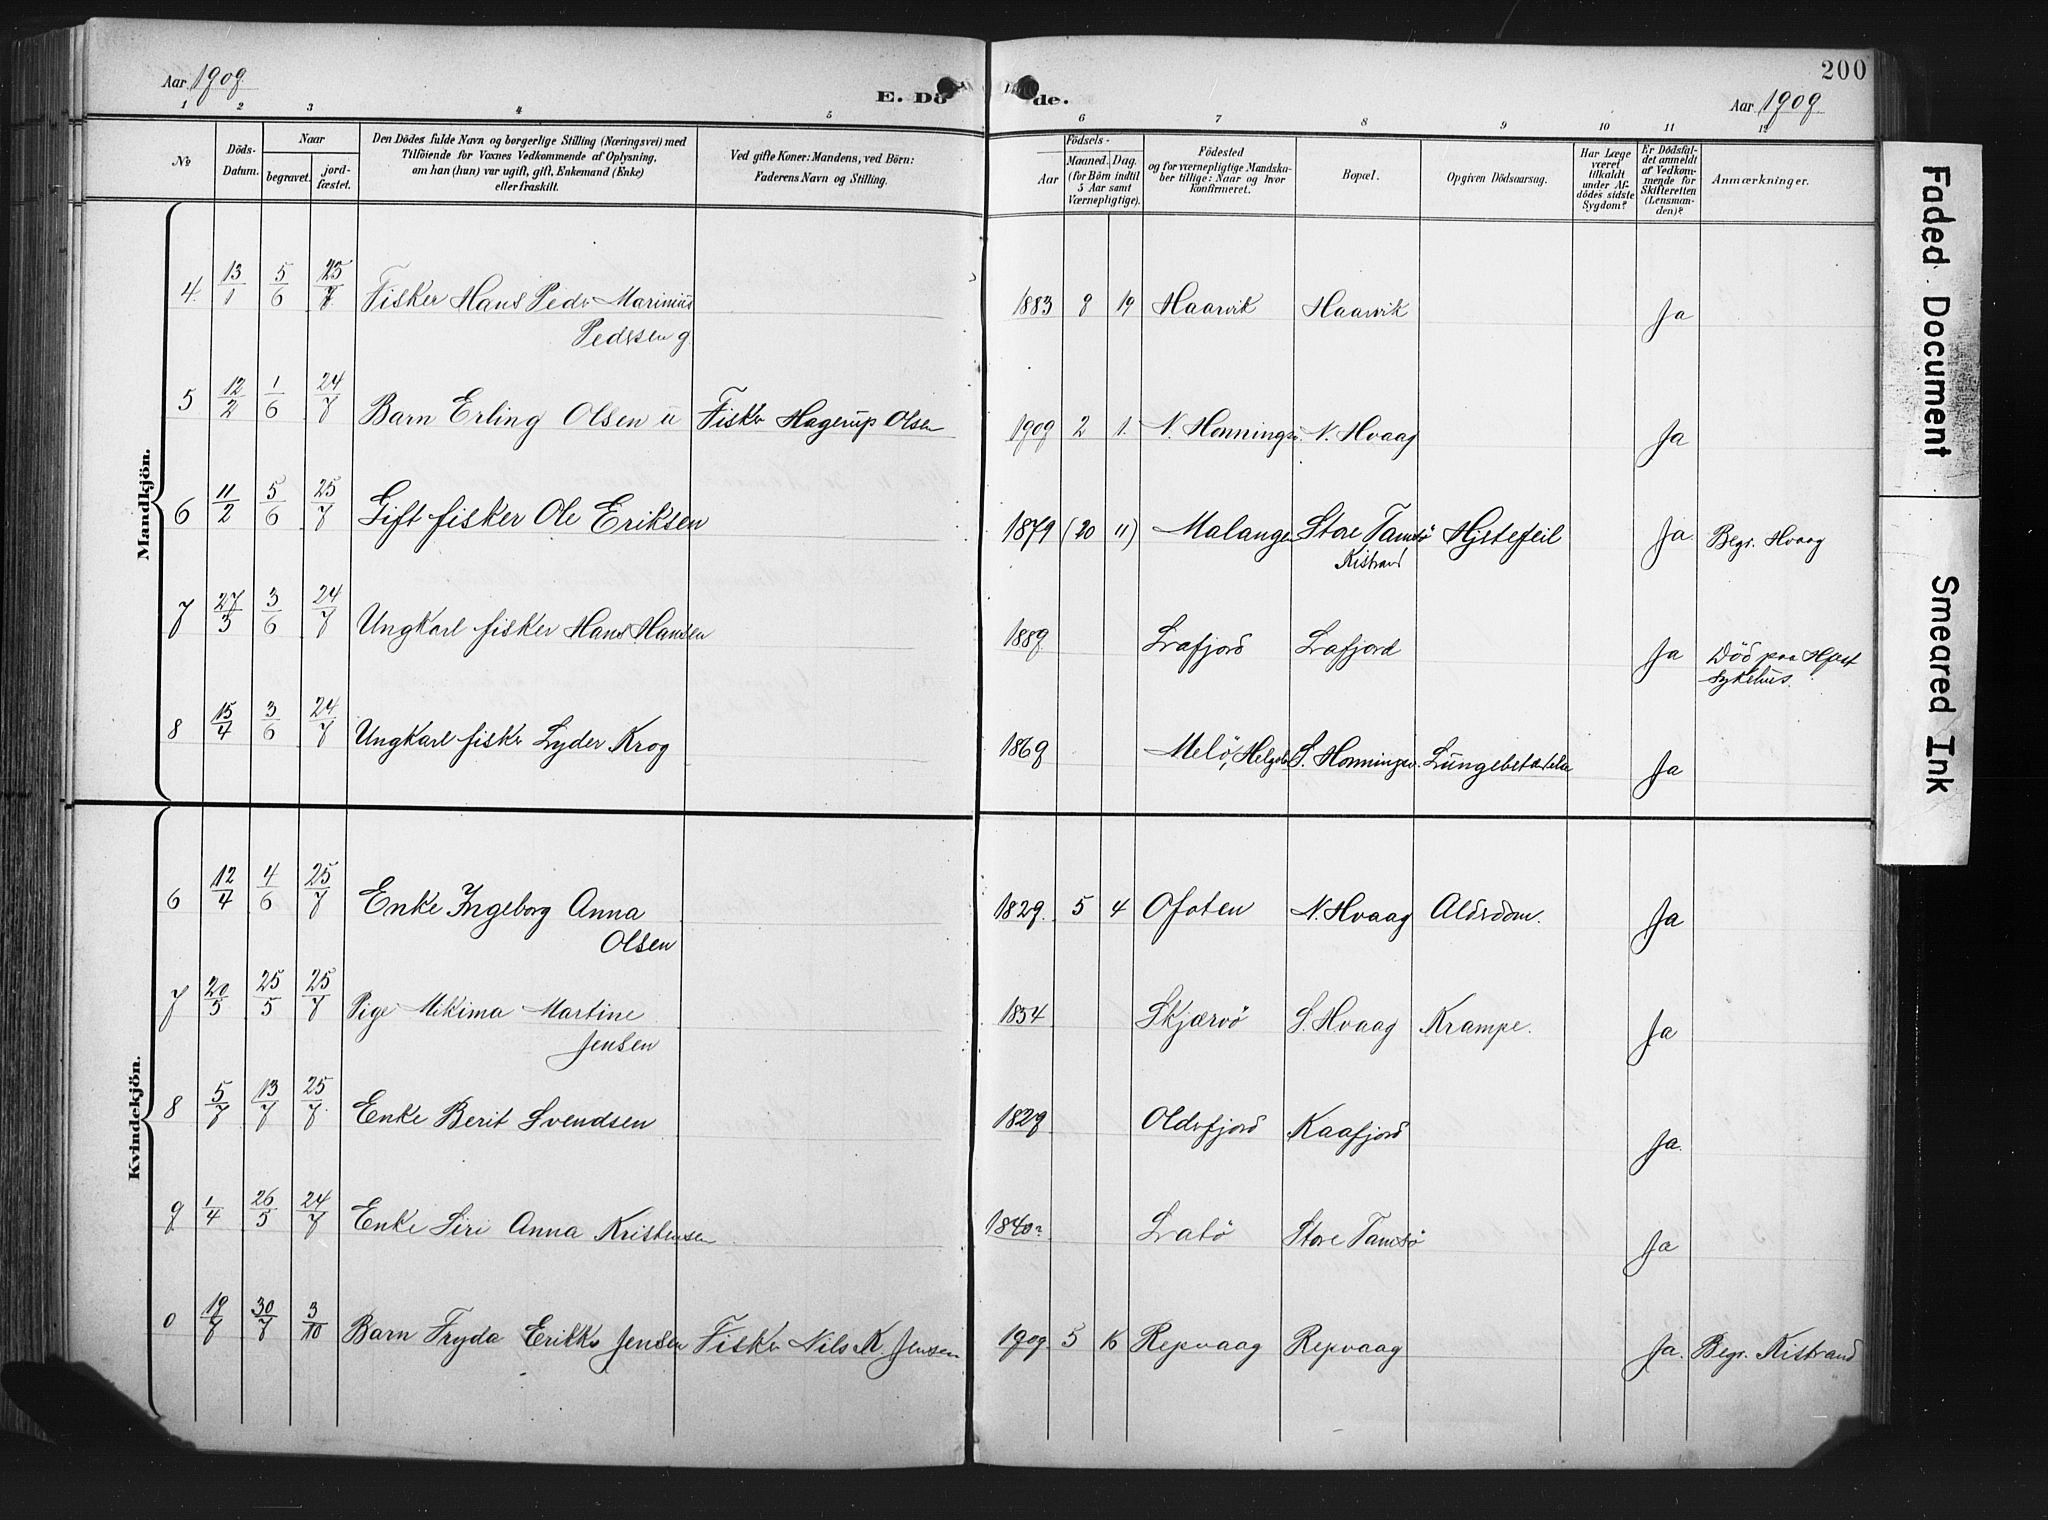 Aar 1909.
E. Dö
de.
200
Aar 1909.
1 2 3 4 5 6 7 8 9 10 11 12
No
Döds-Datum.
Naar
begravet.
jord-fæstet.
Den Dödes fulde Navn og borgerlige Stilling (Næringsvei) med
Tilföiende for Voxnes Vedkommende af Oplysning,
om han (hun) var ugift, gift, Enkemand (Enke)
eller fraskilt.
Ved gifte Koner: Mandens, ved Börn:
Faderens Navn og Stilling.
Födsels-
Aar
Maaned. Dag.
(for Börn indtil
5 Aar samt
Værnepligtige).
Födested
og for værnepligtige Mandska-
ber tillige: Naar og hvor
konfirmeret.
Bopæl.
Opgiven Dödsaarsag.
Har Læge
været
tilkaldt
under Af-
dödes sidste
Sygdom?
Er Dödsfal-
det anmeldt
af Vedkom-
mende for
Skifteretten
(Lensman-
den)?
Anmærkninger.
Mandkjön.
4. 13/1 5/6 25/7 Fisker Hans Peder Marinius
Pedersen g. 1883 9 19 Haarvik Haarvik Ja
5 12/2 1/6 24/7 Barn Erling Olsen u Fisker Hagerup Olsen 1909 2 1. N. Honningsv. N. Hvaag Ja
6 11/2 5/6 25/7 Gift fisker Ole Eriksen 1879 (20 11) Malangen Store Tamsö
Kistrand Hjertefeil Ja. Begr. Hvaag
7 27/3 3/6 24/7 Ungkarl fisker Hans Hansen 1889 Lafjord Lafjord Ja Död paa Hfest
sykehus.
8 15/4 3/6 24/7 Ungkarl fisker Lyder Krog 1869 Melö, Helgela S. Honningsv. Lungebetændelse Ja
Kvindekjön.
6 12/4 4/6 25/7 Enke Ingeborg Anna
Olsen 1829. 5 4 Ofoten N. Hvaag Alderdom. Ja
7 20/5 25/5 25/7 Pige Mekima Martine
Jensen 1854 Skjærvö S. Hvaag Krampe. Ja
8 5/7 13/7 25/7. Enke Berit Svendsen 1829 Olderfjord Kaafjord Ja.
9 1/4 26/5 24/7 Enke Siri Anna Kristensen 1840? Store Tamsö Ja
0 19/7 30/7 3/10 Barn Fryda Erikka Jensen Fisker Nils K. Jensen 1909. 5 16 Repvaag Repvaag Ja. Begr. Kistrand
Faded Document
Smeared Ink